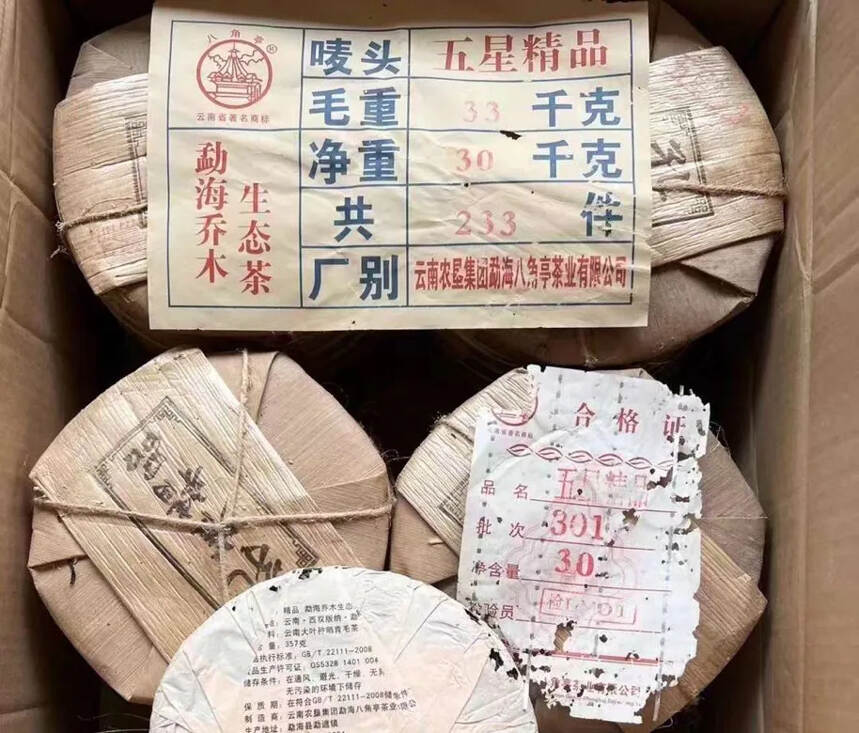 八角亭®
云南省著名商标
勐海乔木
生态茶
唛头 五星精品
毛重 33 千克
净重 30 千克
共 233 件
厂别 云南农垦集团勐海八角亭茶业有限公司
合格证
云南省著名商标
品名 五星精品
批次 301
净含量 30
检验员 检 01
有限公司
精品 勐海乔木生态
云南·西双版纳·勐
料：云南大叶种晒青毛茶
量：357克
品执行标准：GB/T 22111-2008
食品生产许可证：QS5328 1401 004
储存条件：在通风、避光、干燥、无异
无污染的环境下储存
保质期：在符合GB/T 22111-2008储条件
制造商：云南农垦集团勐海八角亭茶业有限公
生产地址：勐海县勐遮镇